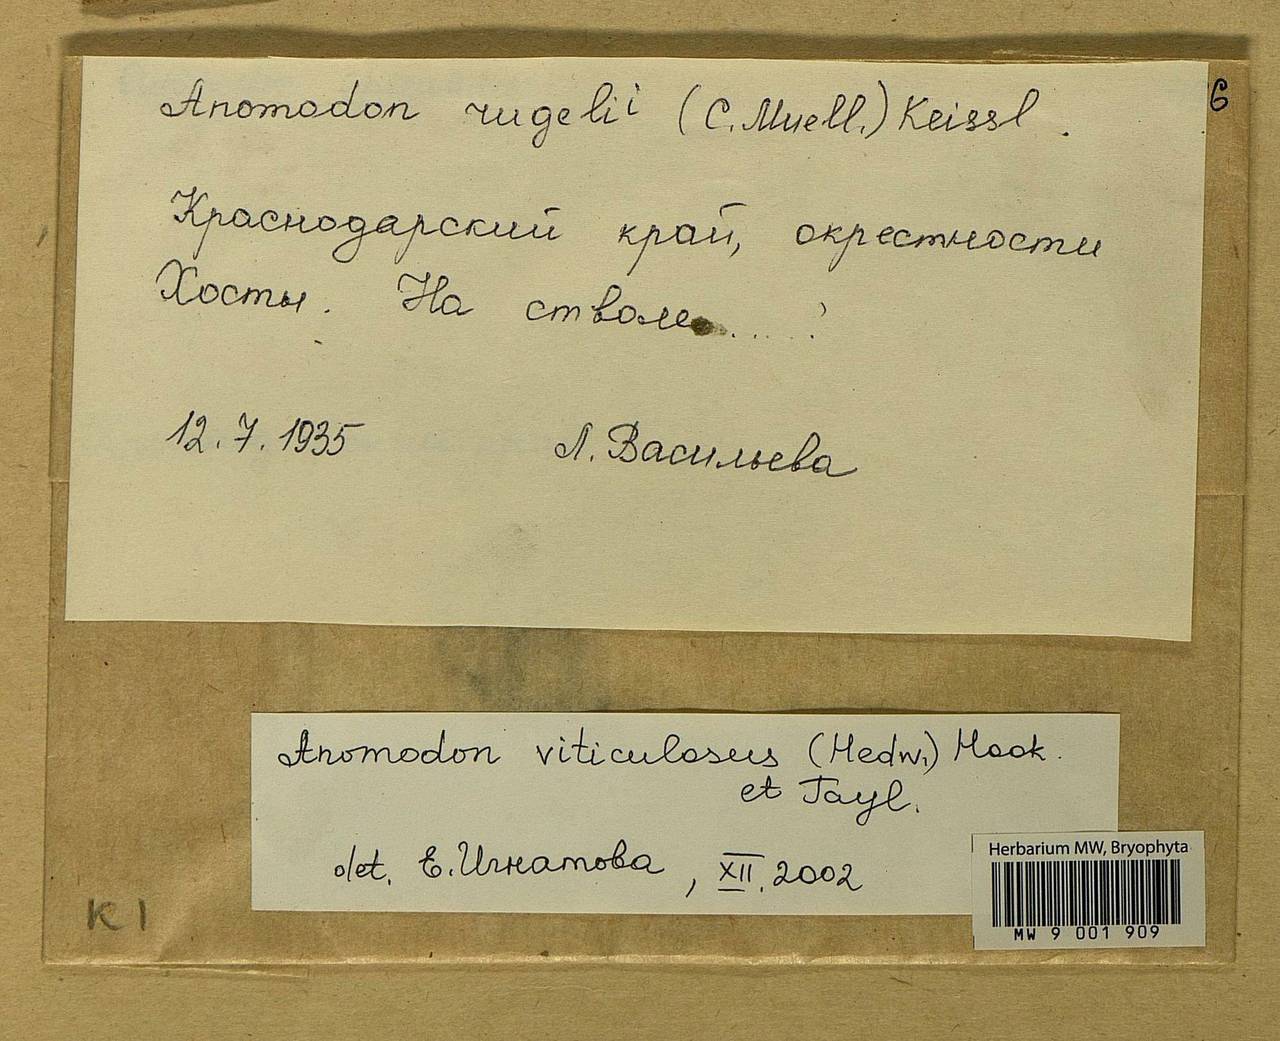 Anomodon rugelii (C. Muell.) Keissl.
6
Краснодарский край, окрестности
Хосты. На стволе.....?
12.7.1935 Л. Васильева
Anomodon viticulosus (Hedw.) Hook.
et Tayl.
det. Е. Игнатова, XII. 2002
Herbarium MW, Bryophyta
MW 9 001 909
K 1